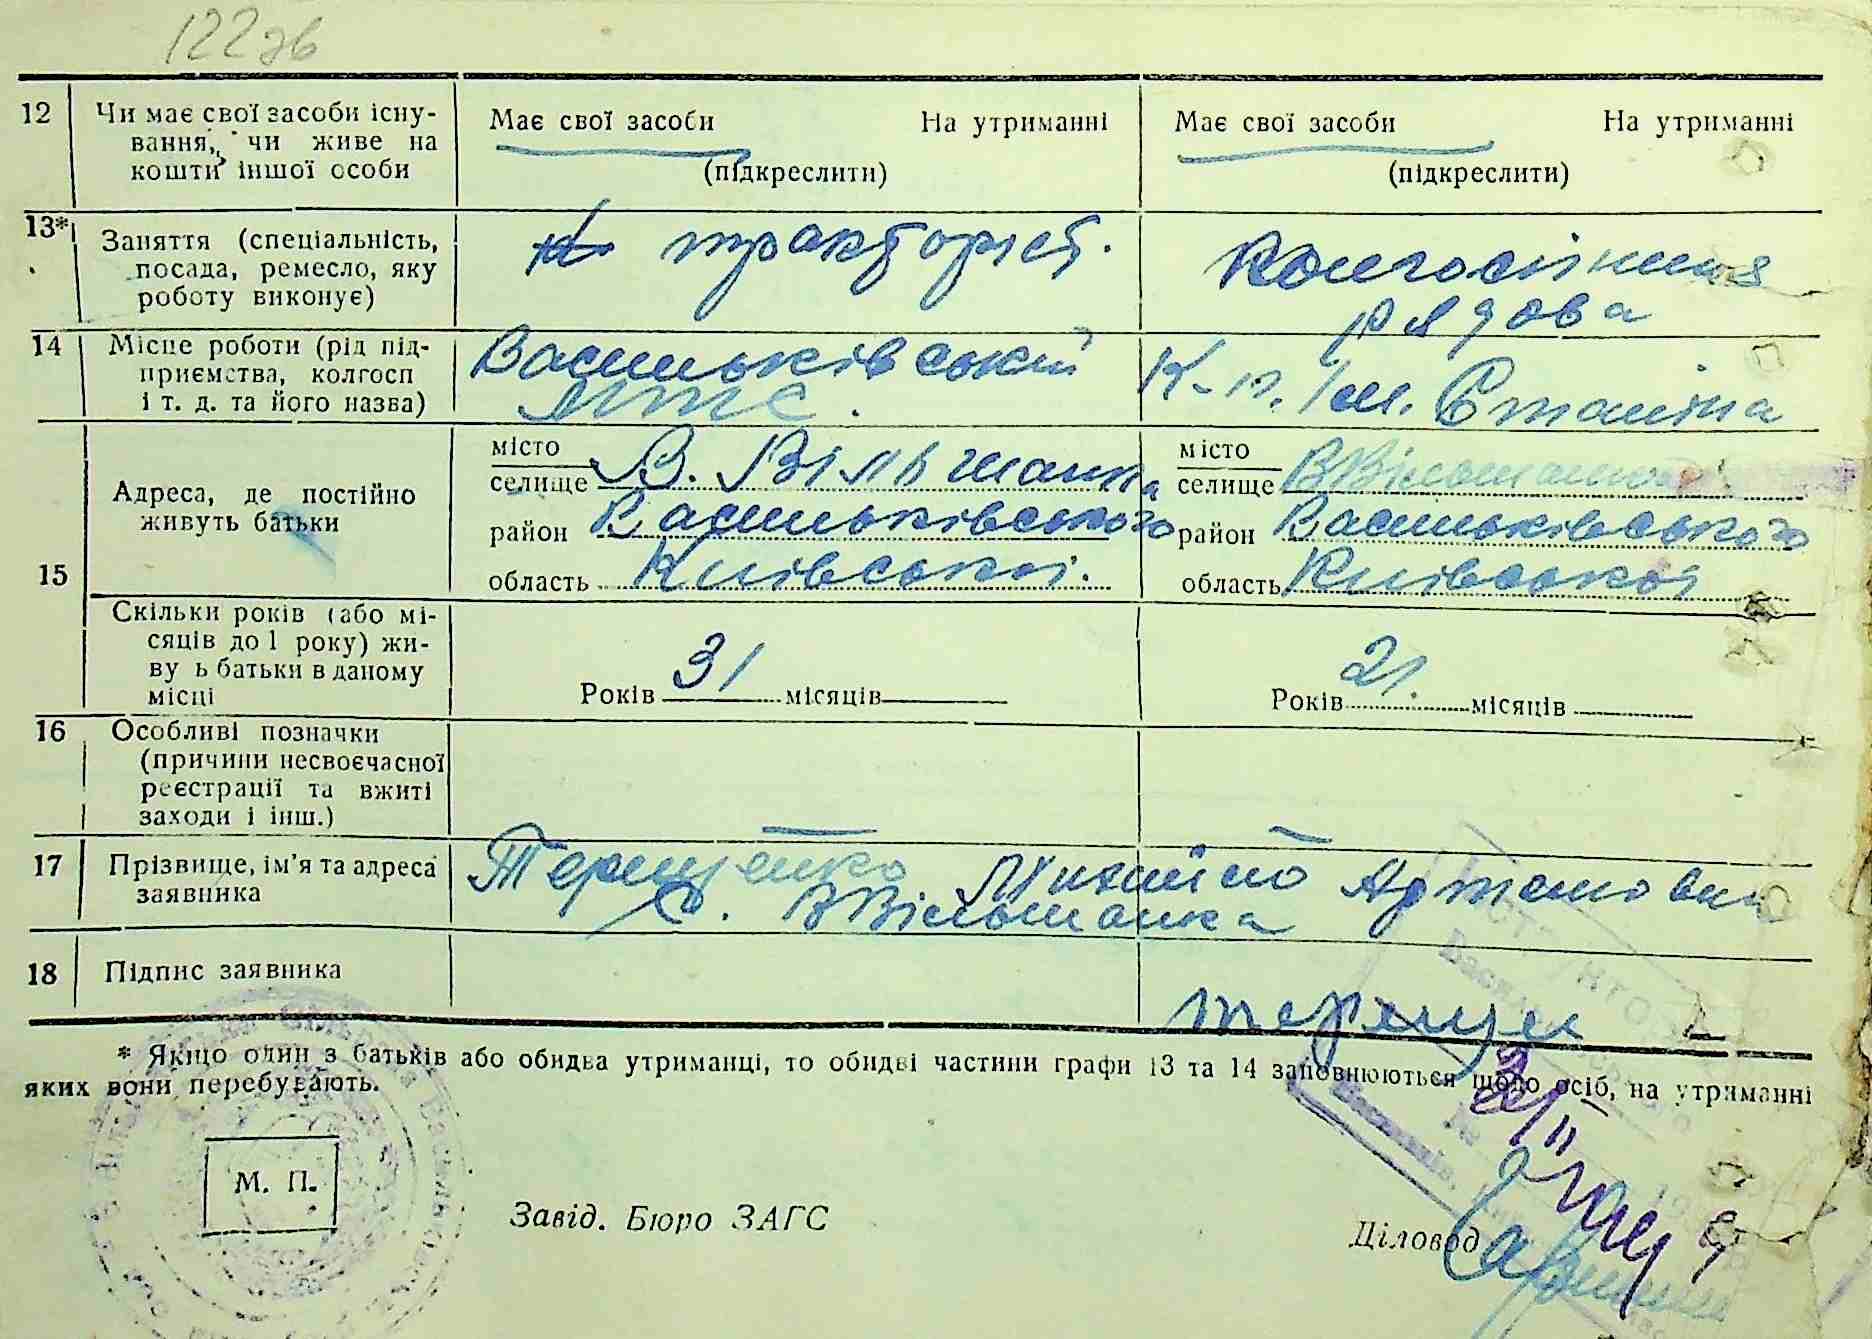 122 зв
12 Чи має свої засоби існу- Має свої засоби На утриманні Має свої засоби На утриманні
вання, чи живе на
кошти іншої особи (підкреслити) (підкреслити)
13* Заняття (спеціальність, тракторіст. Колгоспниця
посада, ремесло, яку
роботу виконує) рядова
14 Місце роботи (рід під- Васильківський К-п. Ім. Сталіна
приємства, колгосп МТС.
і т. д. та його назва)
15 Адреса, де постійно живуть батьки
місто місто
селище В. Вільшанка селище В Вільшанка
район Васильківського район Васильківського
область Київської. область Київської
Скільки років (або мі-
сяців до 1 року) жи-
ву ь батьки в даному
місці Років 31 місяців Років 21. місяців
16 Особливі позначки
(причини несвоєчасної
реєстрації та вжиті
заходи і інш.)
17 Прізвище, ім'я та адреса Терещенко Михайло Артемович
заявника с. В Вільшанка
18 Підпис заявника
Терещен
* Якщо один з батьків або обидва утриманці, то обидві частини графи 13 та 14 заповнюються щодо осіб, на утриманні
яких вони перебувають.
М. П.
Завід. Бюро ЗАГС Діловод